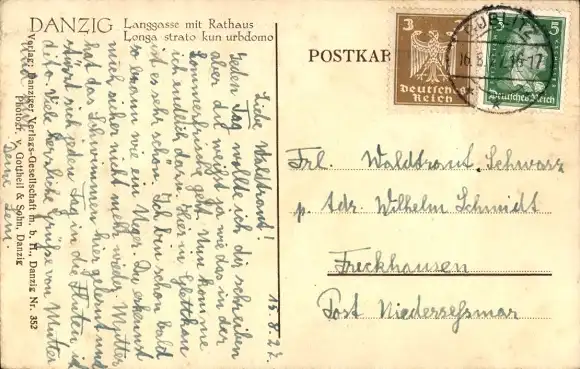 DANZIG Langgasse mit Rathaus
Longa strato kun urbdomo
POSTKAR
3 3
Deutsches
Reich
5 5
Deutsches Reich
BUBLITZ
16.8.27.16-17
Verlag: Danziger Verlags-Gesellschaft m. b. H., Danzig Nr. 352
Photogr. v. Gottheil & Sohn, Danzig
15.8.27.
Liebe Waldtraut!
Jeden Tag wollte ich dir schreiben
aber du weißt ja wie das in der
Sommerfrische geht. Nun komme
ich endlich dazu. Hier in Glettkau
ist es sehr schön. Ich bin schon bald
so braun wie ein Neger. Du erkennst
mich sicher nicht mehr wieder. Mutter
hat das Schwimmen hier gelernt und
stürzt sich jeden Tag in die Fluten
dito. Viele herzliche Grüße von Mutter
Deine Leni.
Frl. Waldtraut Schwarz
p. Adr. Wilhelm Schmidt
Freckhausen
Post Niedersessmar